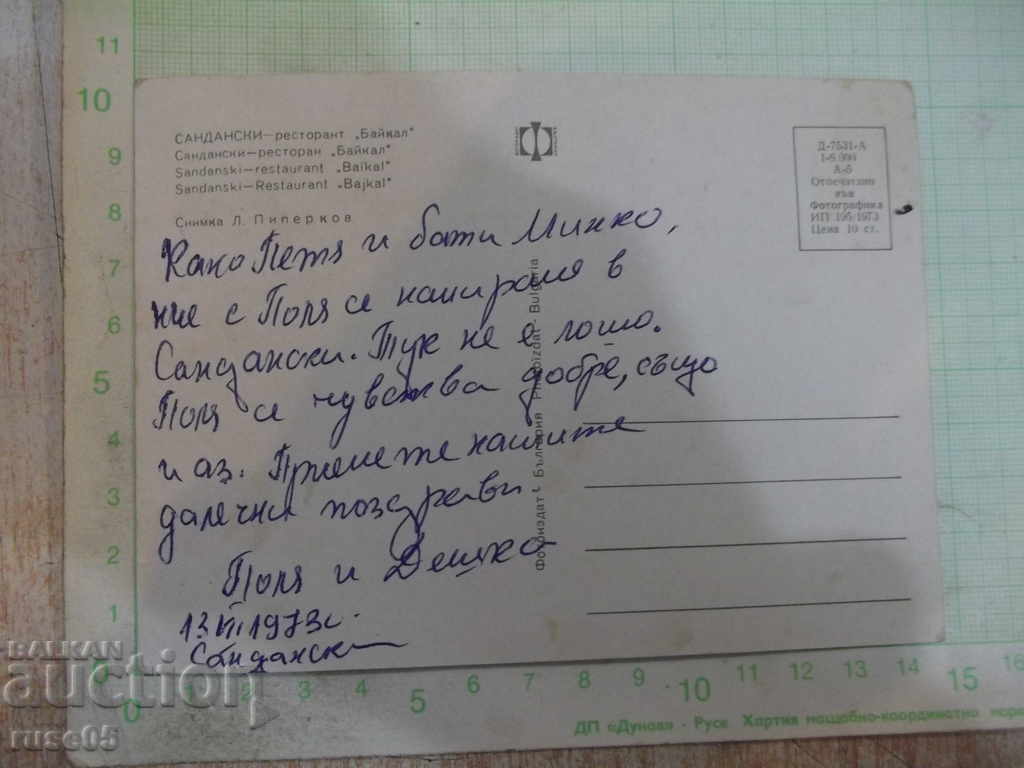 САНДАНСКИ—ресторант „Байкал"
Сандански—ресторан „Байкал"
Sandanski—restaurant „Baikal"
Sandanski—Restaurant „Bajkal"
Снимка Л. Пиперков
Како Петя и бати Минко,
ние с Поля се намираме в
Сандански. Тук не е лошо.
Поля се чувства добре, също
и аз. Приемете нашите
далечни поздрави.
Поля и Дешка
1973г.
Сандански
Д-7531-А
А-6
Отпечатано
във
Фотографика
ИП 195-1973
Цена 10 ст.
Фотоиздат - България Photoizdat - Bulgaria
11
10
9
8
7
6
5
4
3
2
1
0
0 1 2 3 4 5 6 7 8 9 10 11 12 13 14 15 16
ДП «Дунав» - Русе Хартия мащабно-координатно
БАЛКАН
auction
ruse05